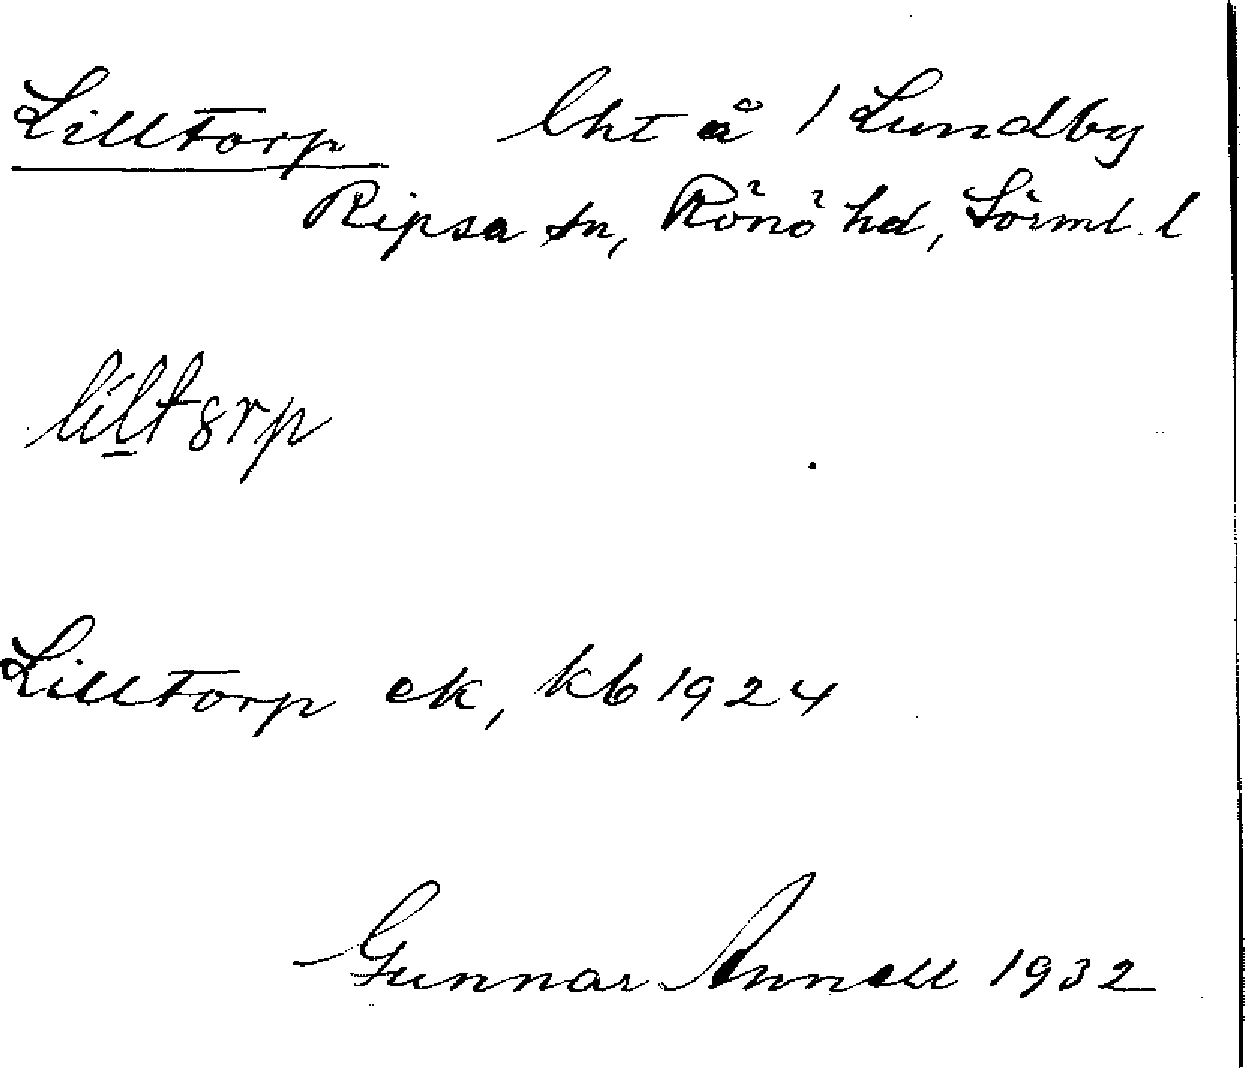 Lilltorp lht å / Lundby
Ripsa sn, Rönö hd, Sörml. l
Lilltorp ek, kb 1924
Gunnar Annell 1932